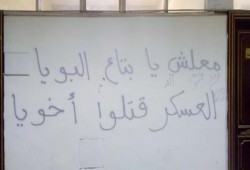 معليش يا بتاع البويا
العسكر قتلوا أخويا